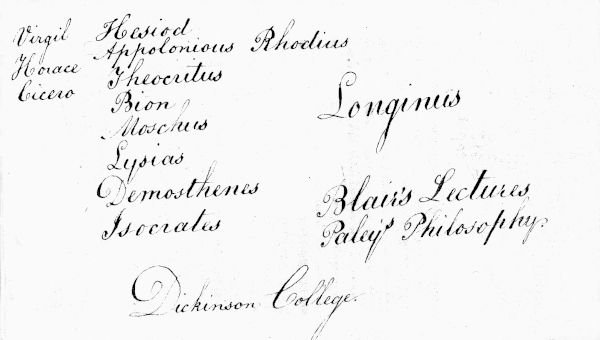 Virgil
Horace
Cicero
Hesiod
Appolonious Rhodius
Theocritus
Bion
Moschus
Lysias
Demosthenes
Isocrates
Longinus
Blair's Lectures
Paley's Philosophy.
Dickinson College.